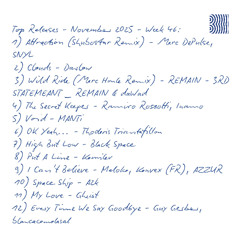 Top Releases - November 2025 - Week 46:
1) Attraction (Shubostar Remix) - Marc DePulse,
SNYL
2) Clouds - Danlow
3) Wild Ride (Marc Houle Remix) - REMAIN - 3RD
STATEMEANT _ REMAIN & daWad
4) The Secret Keeper - Ramiro Rossotti, Inamo
5) Vond - MANTi
6) OK Yeah... - Thodoris Triantafillou
7) High But Low - Black Space
8) Put A Line - Kamilar
9) I Can't Believe - Matoha, Konvex (FR), AZZUR
10) Space Ship - Azk
11) My Love - Gheist
12) Every Time We Say Goodbye - Guy Gersham,
blancasandmosal